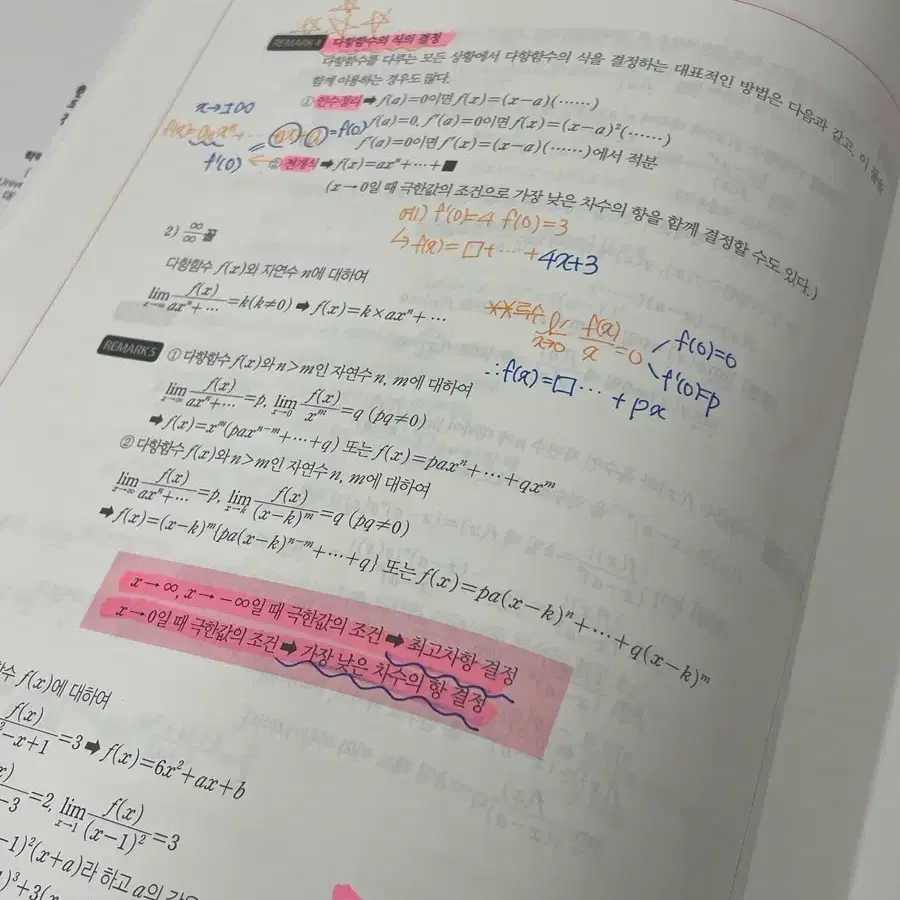 REMARK 4 다항함수의 식의 결정
다항함수를 다루는 모든 상황에서 다항함수의 식을 결정하는 대표적인 방법은 다음과 같고, 이 둘을
함께 이용하는 경우도 많다.
① 인수정리 ➡ f(a)=0이면 f(x)=(x-a)(……)
x→±∞
f(a)=0, f'(a)=0이면 f(x)=(x-a)²(……)
f'(a)=0이면 f'(x)=(x-a)(……)에서 적분
=f(0)
f'(0) ←
② 전개식 ➡ f(x)=axⁿ+…+■
(x→0일 때 극한값의 조건으로 가장 낮은 차수의 항을 함께 결정할 수도 있다.)
예) f'(0)=4 f(0)=3
↳ f(x)=□+…+4x+3
2) ∞/∞ 꼴
다항함수 f(x)와 자연수 n에 대하여
lim x→∞ f(x)/axⁿ+… =k(k≠0) ➡ f(x)=k×axⁿ+…
**특수 lim x→0 f(x)/x =0
f(0)=0
f'(0)=p
∴f(x)=□… +px
REMARK 5 ① 다항함수 f(x)와 n>m인 자연수 n, m에 대하여
lim x→∞ f(x)/axⁿ+… =p, lim x→0 f(x)/xᵐ =q (pq≠0)
➡ f(x)=xᵐ(paxⁿ⁻ᵐ+…+q) 또는 f(x)=paxⁿ+…+qxᵐ
② 다항함수 f(x)와 n>m인 자연수 n, m에 대하여
lim x→∞ f(x)/axⁿ+… =p, lim x→k f(x)/(x-k)ᵐ =q (pq≠0)
➡ f(x)=(x-k)ᵐ{pa(x-k)ⁿ⁻ᵐ+…+q} 또는 f(x)=pa(x-k)ⁿ+…+q(x-k)ᵐ
x→∞, x→-∞일 때 극한값의 조건 ➡ 최고차항 결정
x→0일 때 극한값의 조건 ➡ 가장 낮은 차수의 항 결정
f(x)에 대하여
f(x)/-x+1 =3 ➡ f(x)=6x²+ax+b
=2, lim x→1 f(x)/(x-1)² =3
-1)²(x+a)라 하고 a의